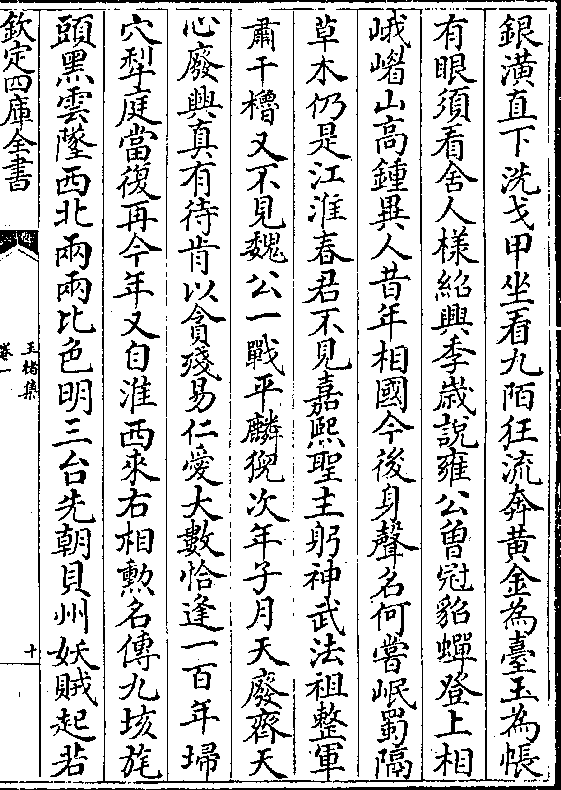 銀潢直下洗戈甲坐看九陌狂流奔黄金為臺玉為帳
有眼須看舍人様紹興季歳說雍公曽冠貂蟬登上相
峨㟭山高鍾異人昔年相國今後身聲名何嘗岷蜀隔
草木仍是江淮春君不見嘉熙聖主躬神武法祖整軍
肅干櫓又不見魏公一戰平麟猊次年子月天廢齊天
心廢興真有待肯以貪殘易仁愛大數恰逢一百年埽
穴犁庭當復再今年又自淮西來右相勲名傳九垓旄
頭黑雲墜西北兩兩比色明三台先朝貝州妖賊起若
欽定四庫全書
玉楮集
卷一
十